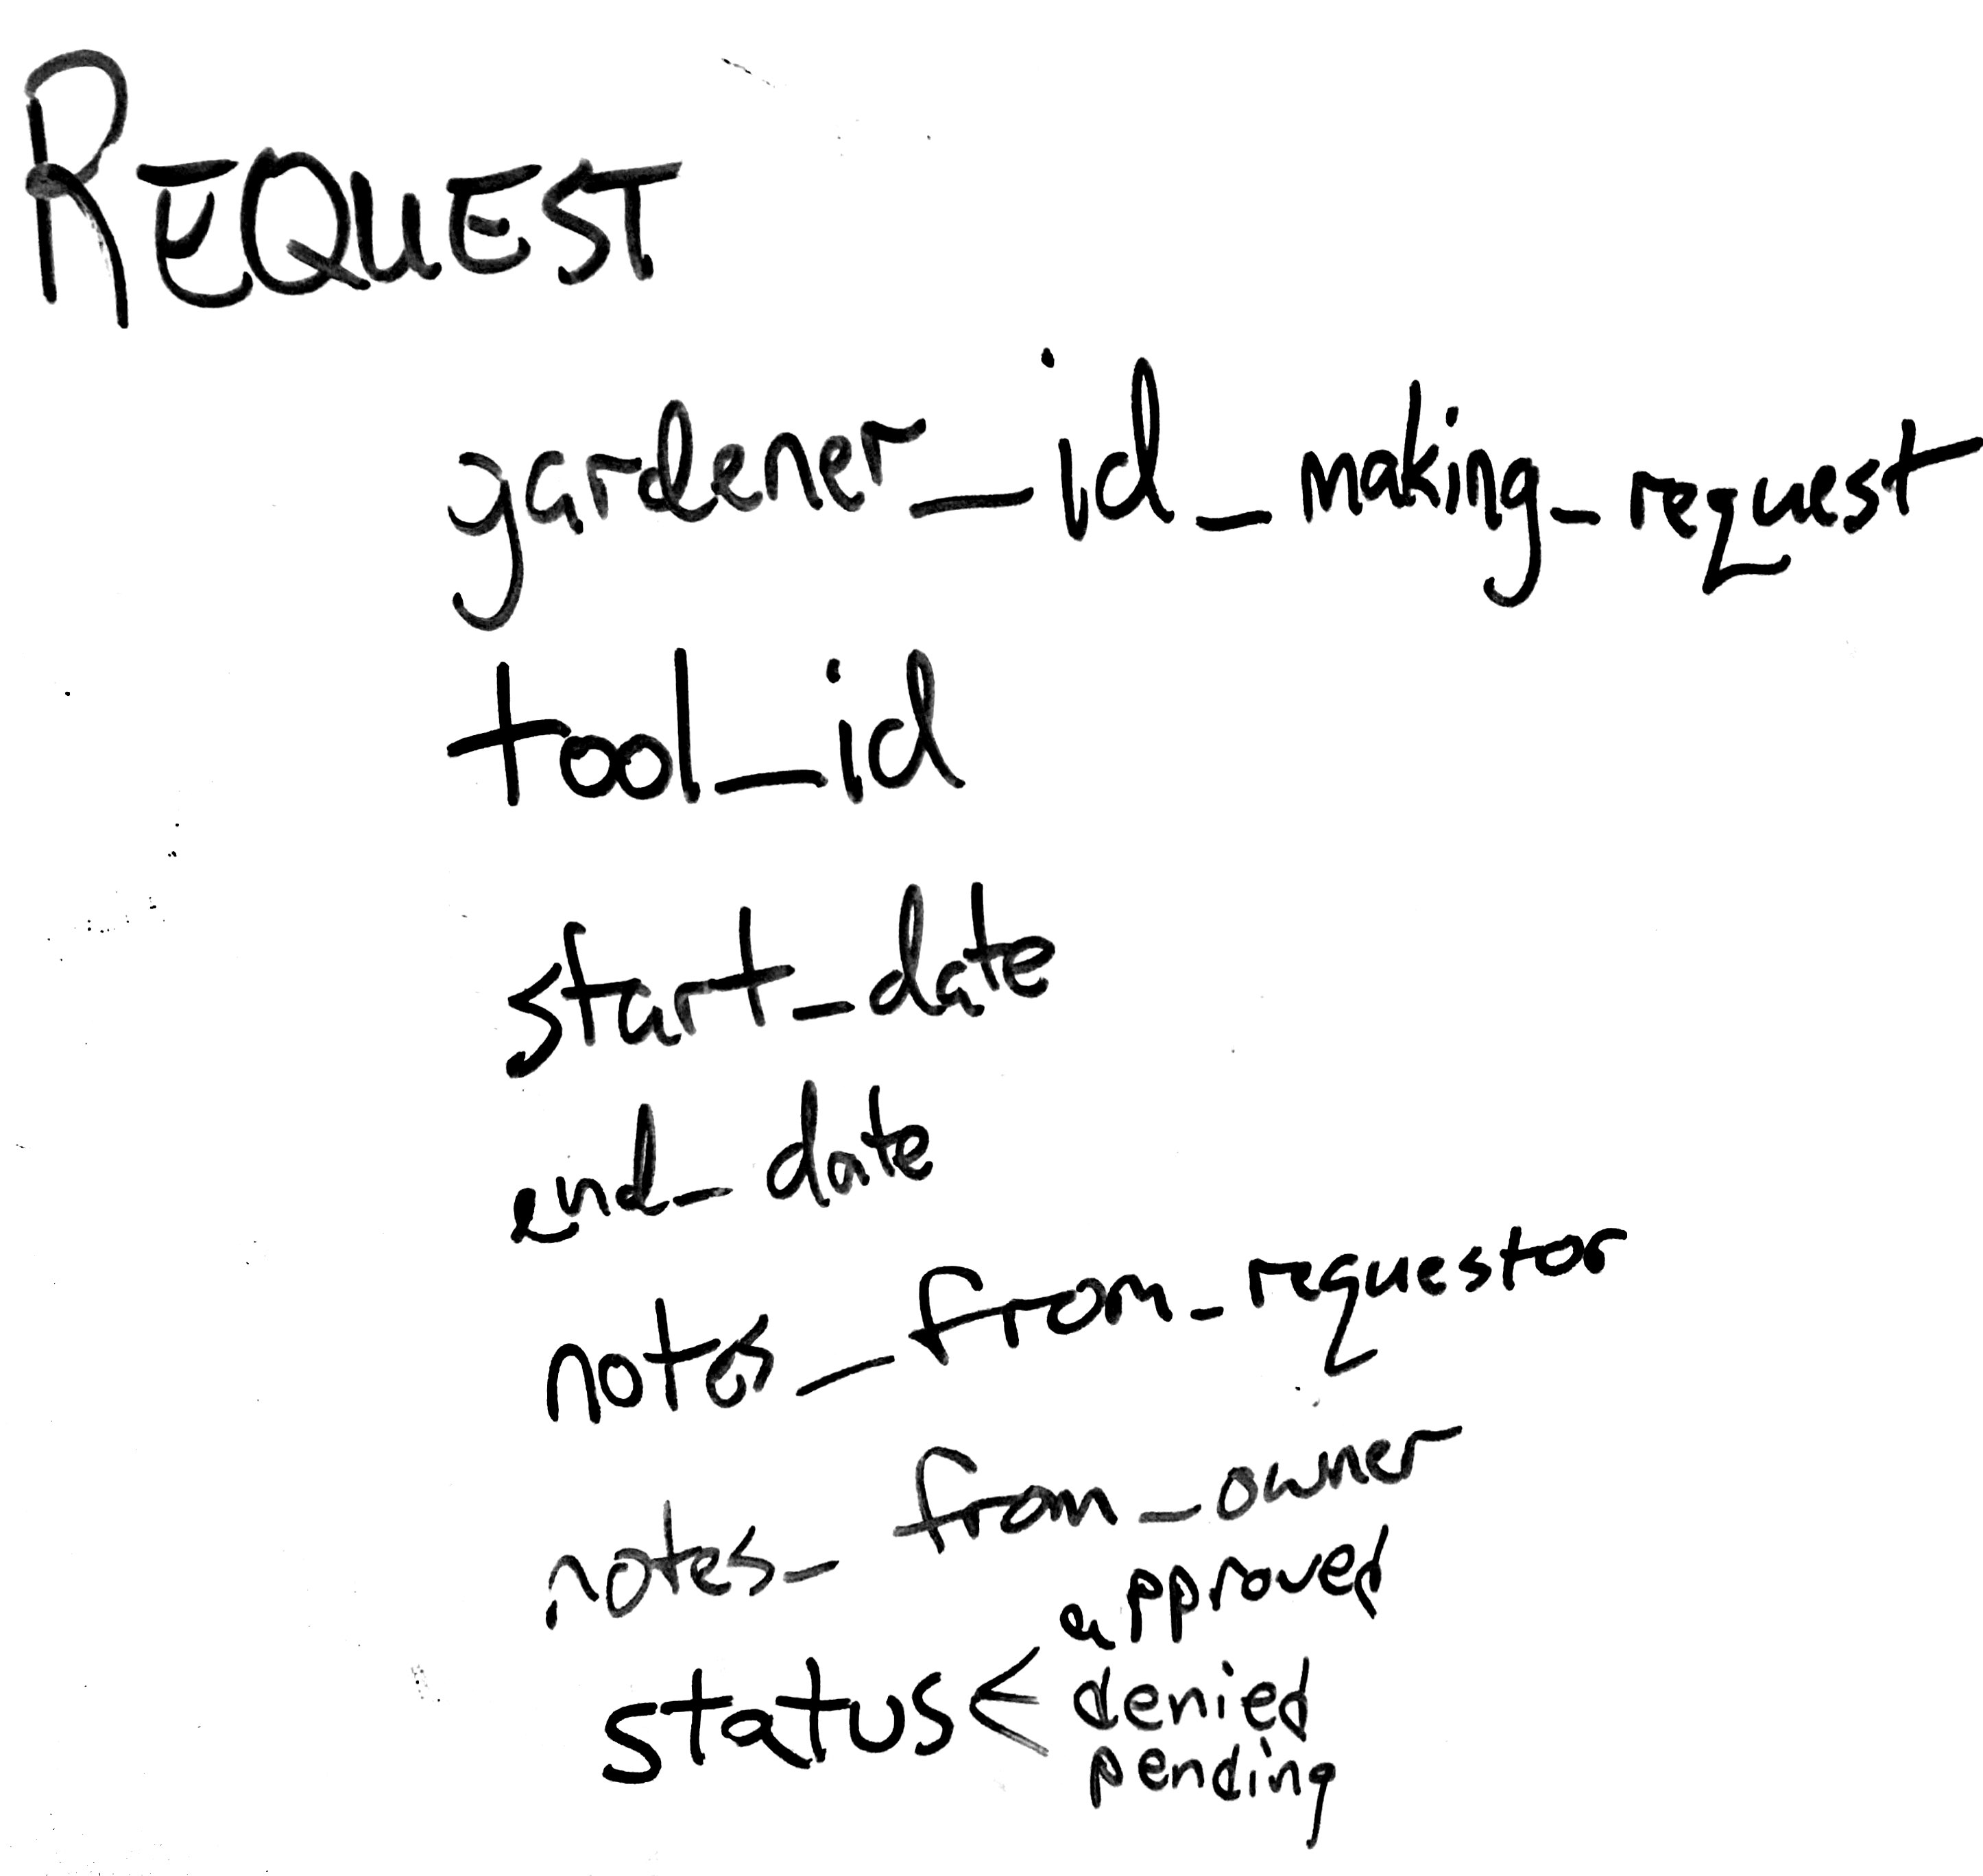 REQUEST
gardener_id_making_request
tool_id
start_date
end_date
notes_from_requestor
notes_from_owner
approved
status < denied
pending